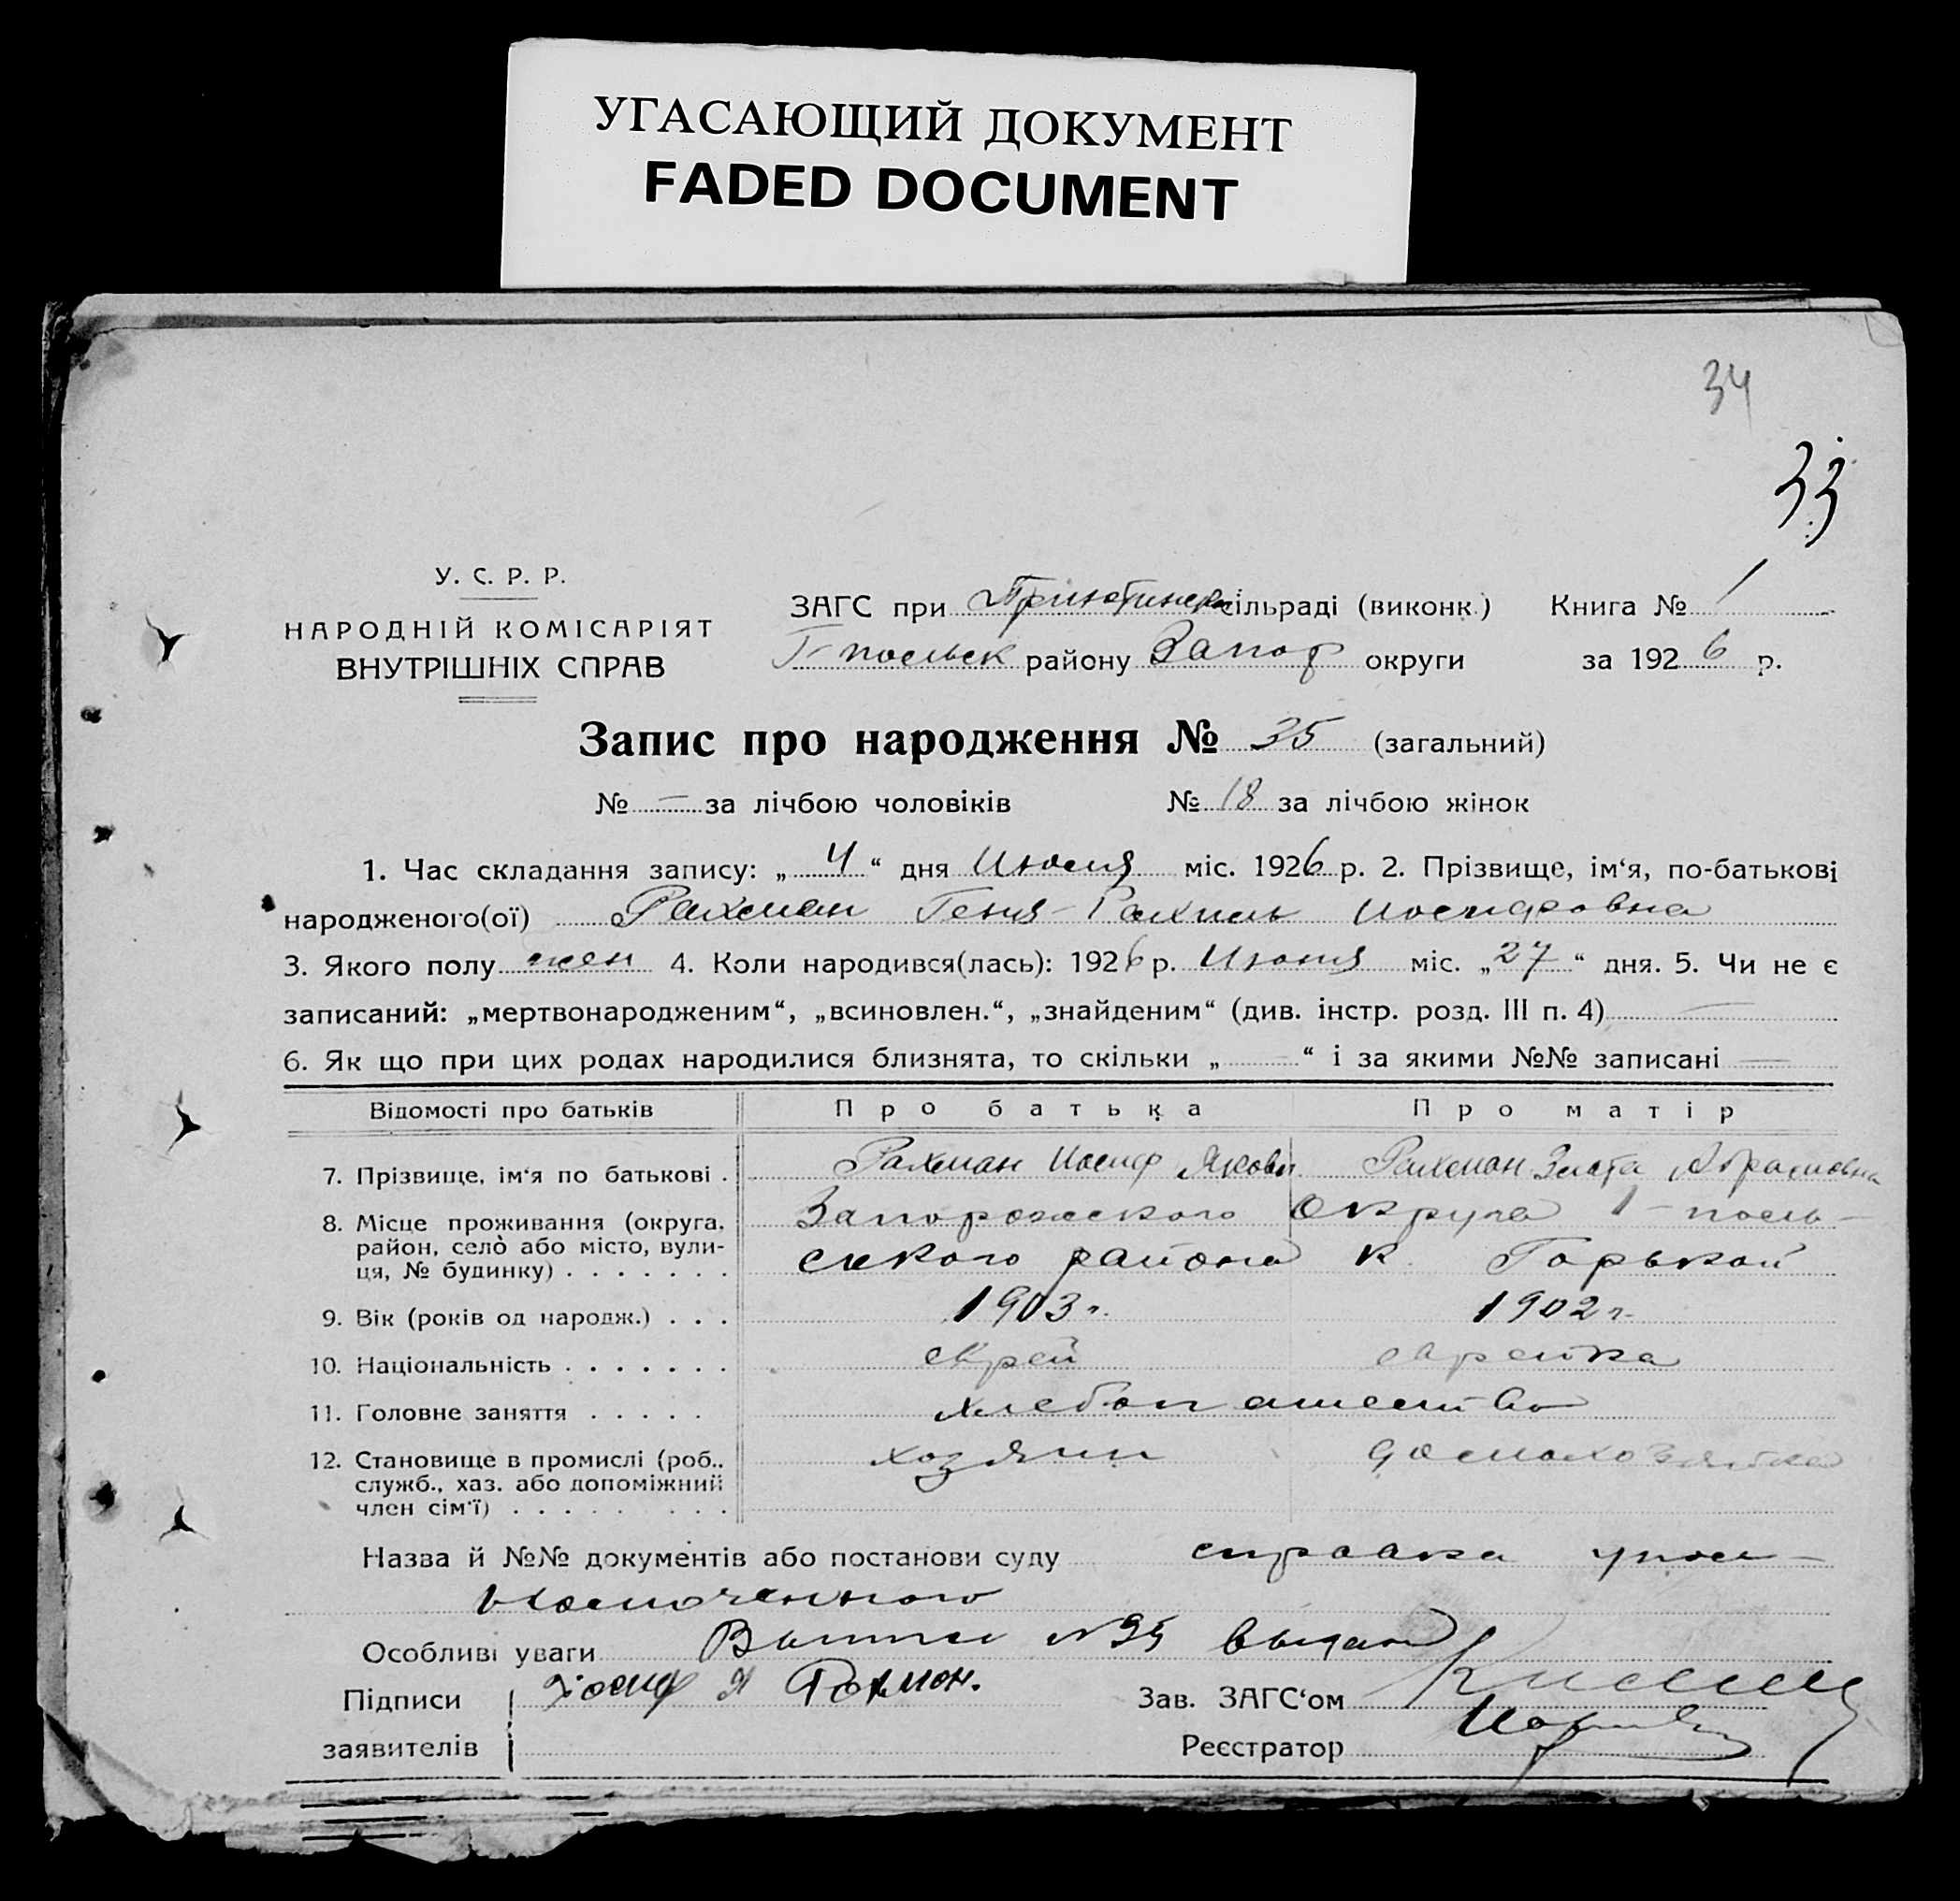 УГАСАЮЩИЙ ДОКУМЕНТ
FADED DOCUMENT
34
33
У. С. Р. Р.
НАРОДНІЙ КОМІСАРІЯТ
ВНУТРІШНІХ СПРАВ
ЗАГС при Приютинск сільраді (виконк.) Книга № 1
району Запор округи за 1926 р.
Запис про народження № 35 (загальний)
№ — за лічбою чоловіків № 18 за лічбою жінок
1. Час складання запису: „ 4 “ дня Июля міс. 1926 р. 2. Прізвище, ім‘я, по-батькові
народженого(ої) Рахман Геня-Рахиль Иосифовна
3. Якого полу жен 4. Коли народився(лась): 1926 р. Июня міс. „ 27 “ дня. 5. Чи не є
записаний: „мертвонародженим“, „всиновлен.“, „знайденим“ (див. інстр. розд. III п. 4) —
6. Як що при цих родах народилися близнята, то скільки „ — “ і за якими №№ записані —
Відомості про батьків Про батька Про матір
7. Прізвище, ім‘я по батькові . Рахман Иосиф Яковл. Рахман Злата Абрамовна
8. Місце проживання (округа, Запорожского Округа 1-поль-
район, село або місто, вули- ского района к. Горькой
ця, № будинку) . . . . . . .
9. Вік (років од народж.) . . . 1903 г. 1902 г.
10. Національність . . . . . . . еврей еврейка
11. Головне заняття . . . . . хлебопашество
12. Становище в промислі (роб., хозяин домохозяйка
служб., хаз. або допоміжний
член сім‘ї) . . . . . . . .
Назва й №№ документів або постанови суду справка упол-
номоченного
Особливі уваги №35 выдан
Підписи Иосиф Я Рахман. Зав. ЗАГС‘ом
заявителів Реєстратор